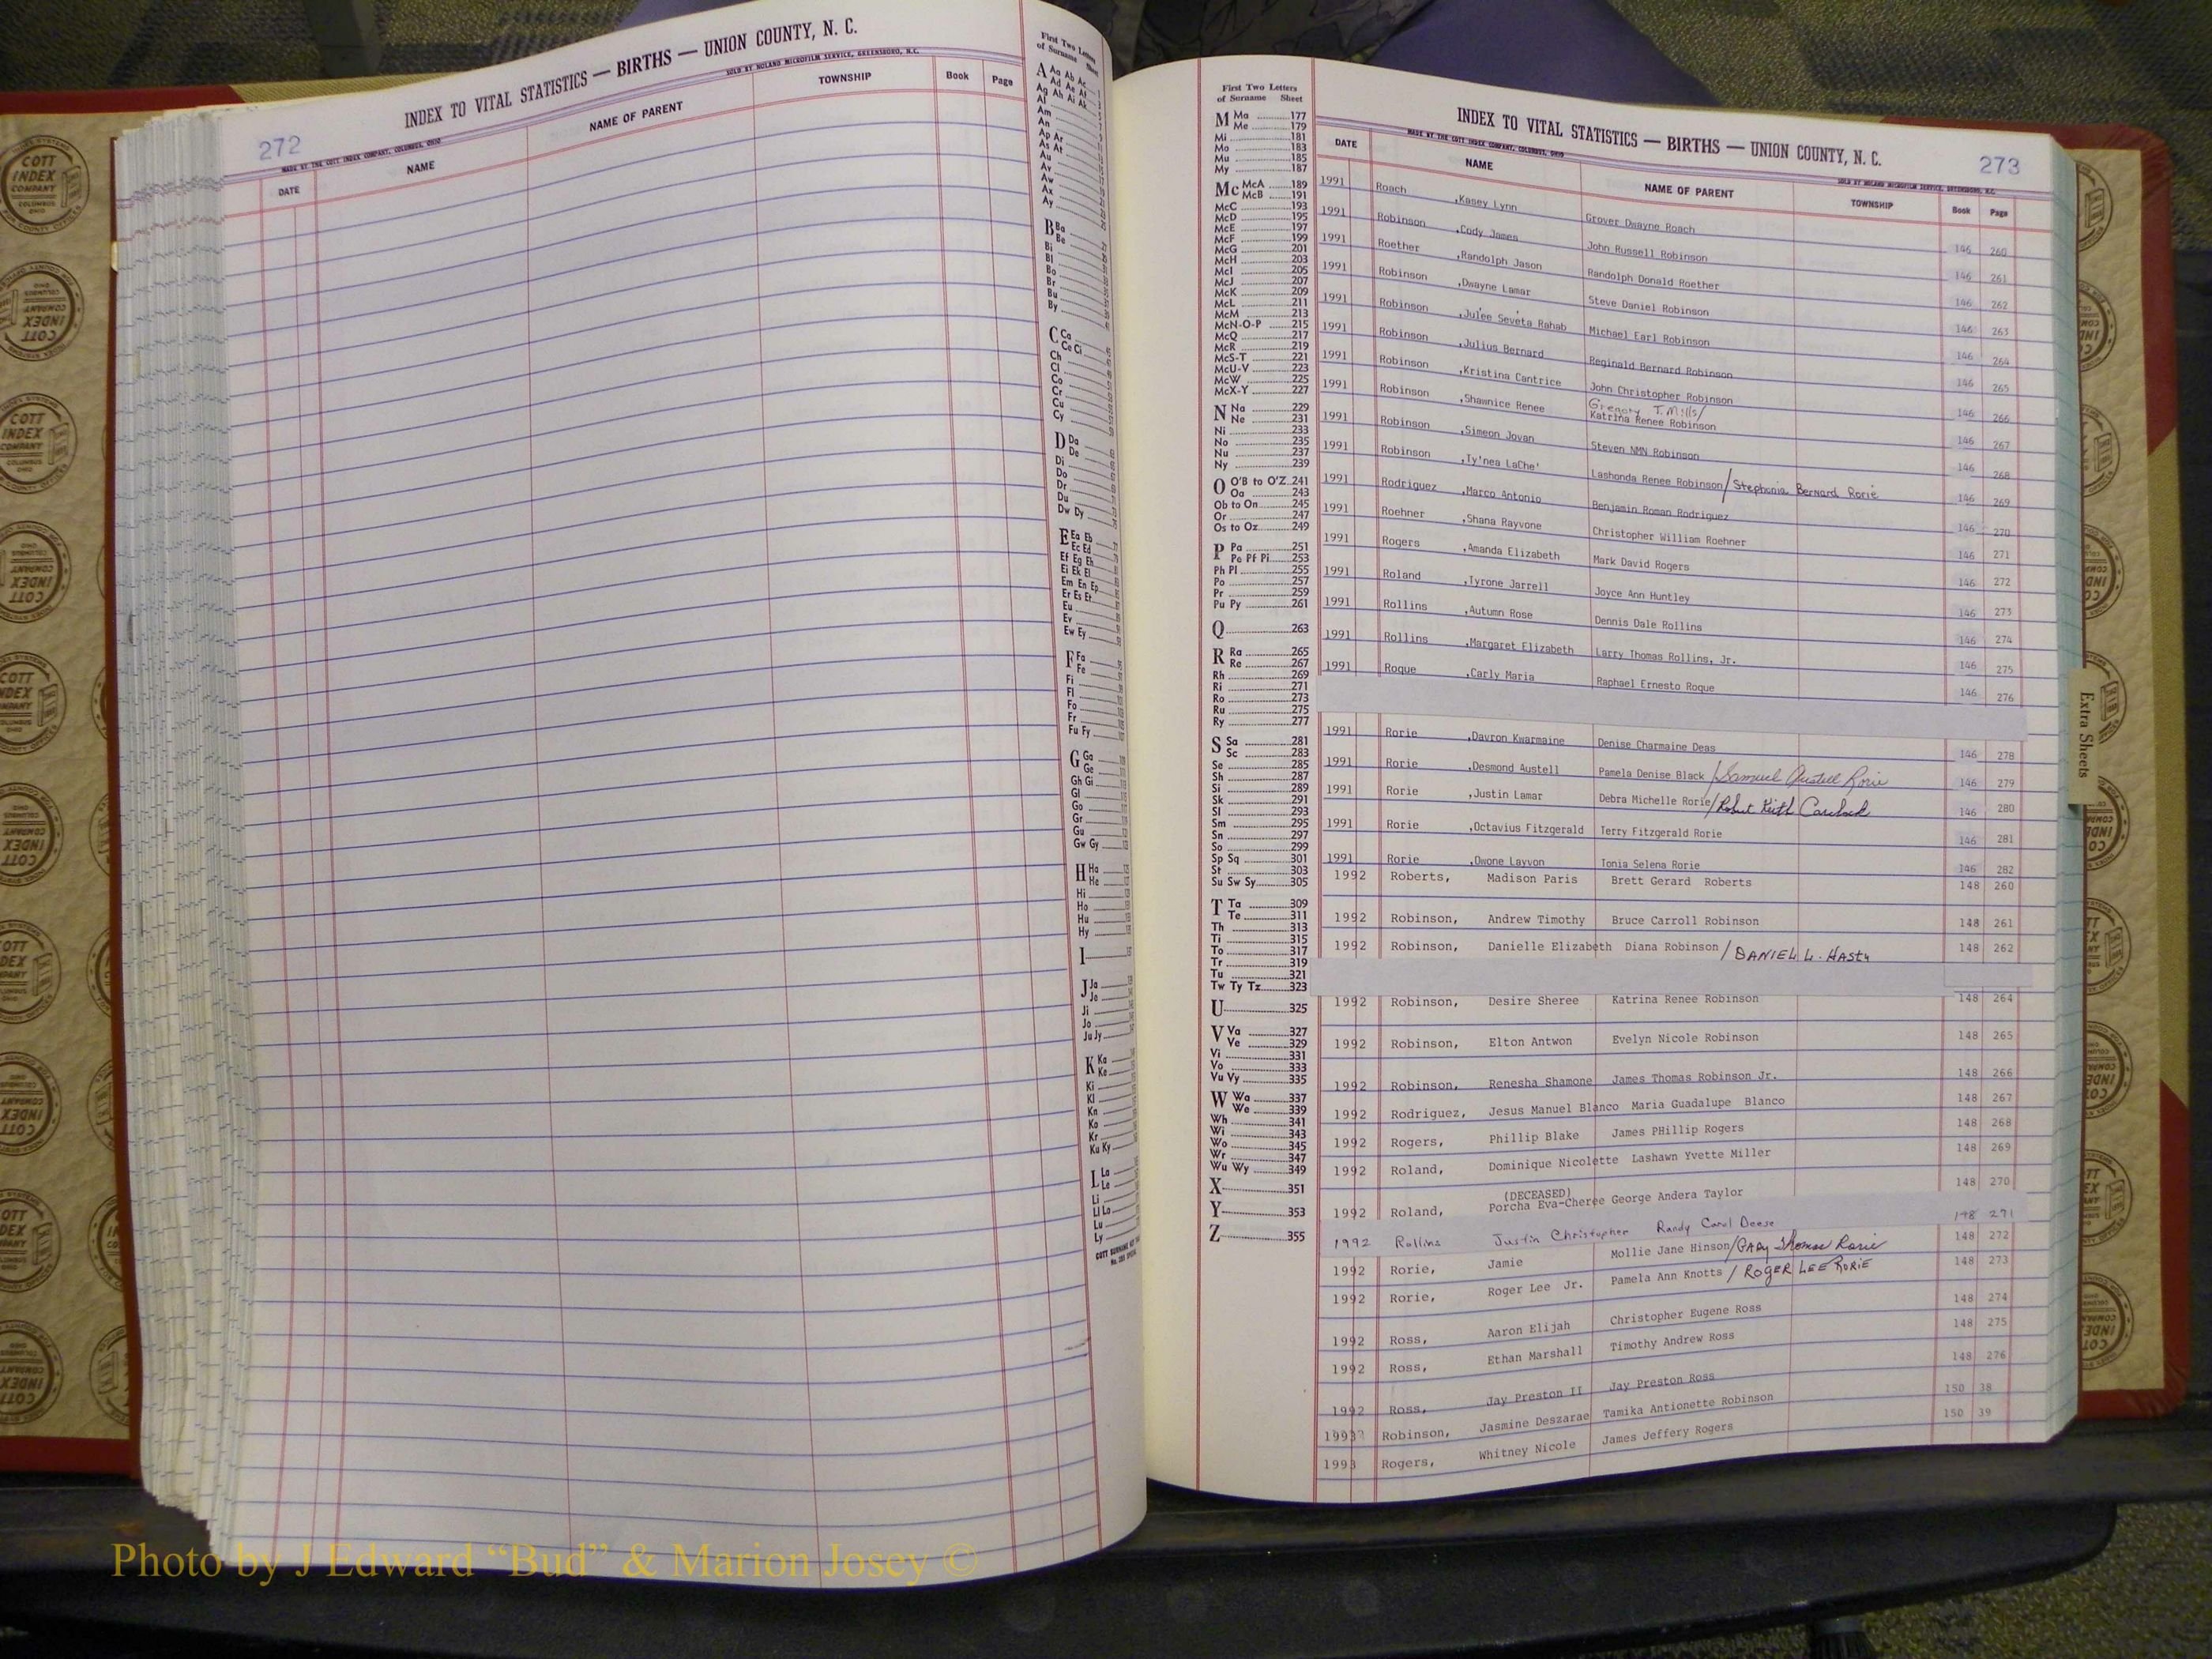 272
INDEX TO VITAL STATISTICS — BIRTHS — UNION COUNTY, N. C.
MADE BY THE COTT INDEX COMPANY, COLUMBUS, OHIO
SOLD BY NOLAND MICROFILM SERVICE, GREENSBORO, N.C.
DATE NAME NAME OF PARENT TOWNSHIP Book Page
First Two Letters
of Surname Sheet
A Aa Ab Ac
Ad Ae Af
Ag Ah Ai Ak
Al
Am
An
Ap Ar
As At
Au
Av
Aw
Ax
Ay
B Ba
Be
Bi
Bl
Bo
Br
Bu
By
C Ca
Ce Ci
Ch
Cl
Co
Cr
Cu
Cy
D Da
De
Di
Do
Dr
Du
Dw Dy
E Ea Eb
Ec Ed
Ef Eg Eh
Ei Ek El
Em En Ep
Er Es Et
Eu
Ev
Ew Ey
F Fa
Fe
Fi
Fl
Fo
Fr
Fu Fy
G Ga
Ge
Gh Gi
Gl
Go
Gr
Gu
Gw Gy
H Ha
He
Hi
Ho
Hu
Hy
I
J Ja
Je
Ji
Jo
Ju Jy
K Ka
Ke
Ki
Kl
Kn
Ko
Kr
Ku Ky
L La
Le
Li
Ll Lo
Lu
Ly
First Two Letters
of Surname Sheet
M Ma 177
Me 179
Mi 181
Mo 183
Mu 185
My 187
Mc McA 189
McB 191
McC 193
McD 195
McE 197
McF 199
McG 201
McH 203
McI 205
McJ 207
McK 209
McL 211
McM 213
McN-O-P 215
McQ 217
McR 219
McS-T 221
McU-V 223
McW 225
McX-Y 227
N Na 229
Ne 231
Ni 233
No 235
Nu 237
Ny 239
O O'B to O'Z 241
Oa 243
Ob to On 245
Or 247
Os to Oz 249
P Pa 251
Pe Pf Pi 253
Ph Pl 255
Po 257
Pr 259
Pu Py 261
Q 263
R Ra 265
Re 267
Rh 269
Ri 271
Ro 273
Ru 275
Ry 277
S Sa 281
Sc 283
Se 285
Sh 287
Si 289
Sk 291
Sl 293
Sm 295
Sn 297
So 299
Sp Sq 301
St 303
Su Sw Sy 305
T Ta 309
Te 311
Th 313
Ti 315
To 317
Tr 319
Tu 321
Tw Ty Tz 323
U 325
V Va 327
Ve 329
Vi 331
Vo 333
Vu Vy 335
W Wa 337
We 339
Wh 341
Wi 343
Wo 345
Wr 347
Wu Wy 349
X 351
Y 353
Z 355
273
INDEX TO VITAL STATISTICS — BIRTHS — UNION COUNTY, N. C.
MADE BY THE COTT INDEX COMPANY, COLUMBUS, OHIO
SOLD BY NOLAND MICROFILM SERVICE, GREENSBORO, N.C.
DATE NAME NAME OF PARENT TOWNSHIP Book Page
1991 Roach ,Kasey Lynn Grover Dwayne Roach 146 260
1991 Robinson ,Cody James John Russell Robinson 146 261
1991 Roether ,Randolph Jason Randolph Donald Roether 146 262
1991 Robinson ,Dwayne Lamar Steve Daniel Robinson 146 263
1991 Robinson ,Julee Seveta Rahab Michael Earl Robinson 146 264
1991 Robinson ,Julius Bernard Reginald Bernard Robinson 146 265
1991 Robinson ,Kristina Cantrice John Christopher Robinson 146 266
1991 Robinson ,Shawnice Renee Gregory T. Mills/ Katrina Renee Robinson 146 267
1991 Robinson ,Simeon Jovan Steven NMN Robinson 146 268
1991 Robinson ,Ty'nea LaChe' Lashonda Renee Robinson/Stephonia Bernard Rorie 146 269
1991 Rodriguez ,Marco Antonio Benjamin Roman Rodriguez 146 270
1991 Roehner ,Shana Rayvone Christopher William Roehner 146 271
1991 Rogers ,Amanda Elizabeth Mark David Rogers 146 272
1991 Roland ,Tyrone Jarrell Joyce Ann Huntley 146 273
1991 Rollins ,Autumn Rose Dennis Dale Rollins 146 274
1991 Rollins ,Margaret Elizabeth Larry Thomas Rollins, Jr. 146 275
1991 Roque ,Carly Maria Raphael Ernesto Roque 146 276
1991 Rorie ,Davron Kwarmaine Denise Charmaine Deas 146 278
1991 Rorie ,Desmond Austell Pamela Denise Black /Samuel Austell Rorie 146 279
1991 Rorie ,Justin Lamar Debra Michelle Rorie/Robert Keith 146 280
1991 Rorie ,Octavius Fitzgerald Terry Fitzgerald Rorie 146 281
1991 Rorie ,Qwone Layvon Tonia Selena Rorie 146 282
1992 Roberts, Madison Paris Brett Gerard Roberts 148 260
1992 Robinson, Andrew Timothy Bruce Carroll Robinson 148 261
1992 Robinson, Danielle Elizabeth Diana Robinson / DANIEL L. HASTY 148 262
1992 Robinson, Desire Sheree Katrina Renee Robinson 148 264
1992 Robinson, Elton Antwon Evelyn Nicole Robinson 148 265
1992 Robinson, Renesha Shamone James Thomas Robinson Jr. 148 266
1992 Rodriguez, Jesus Manuel Blanco Maria Guadalupe Blanco 148 267
1992 Rogers, Phillip Blake James PHillip Rogers 148 268
1992 Roland, Dominique Nicolette Lashawn Yvette Miller 148 269
(DECEASED)
1992 Roland, Porcha Eva-Cheree George Andera Taylor 148 270
1992 Rollins Justin Christopher Randy Carol Deese 148 271
1992 Rorie, Jamie Mollie Jane Hinson/GARy Thomas Rorie 148 272
1992 Rorie, Roger Lee Jr. Pamela Ann Knotts / ROGER LEE RORIE 148 273
1992 Ross, Aaron Elijah Christopher Eugene Ross 148 274
1992 Ross, Ethan Marshall Timothy Andrew Ross 148 275
1992 Ross, Jay Preston II Jay Preston Ross 148 276
1993 Robinson, Jasmine Deszarae Tamika Antionette Robinson 150 38
1993 Rogers, Whitney Nicole James Jeffery Rogers 150 39
Extra Sheets
COTT
INDEX
COMPANY
COLUMBUS
OHIO
Photo by J Edward “Bud” & Marion Josey ©